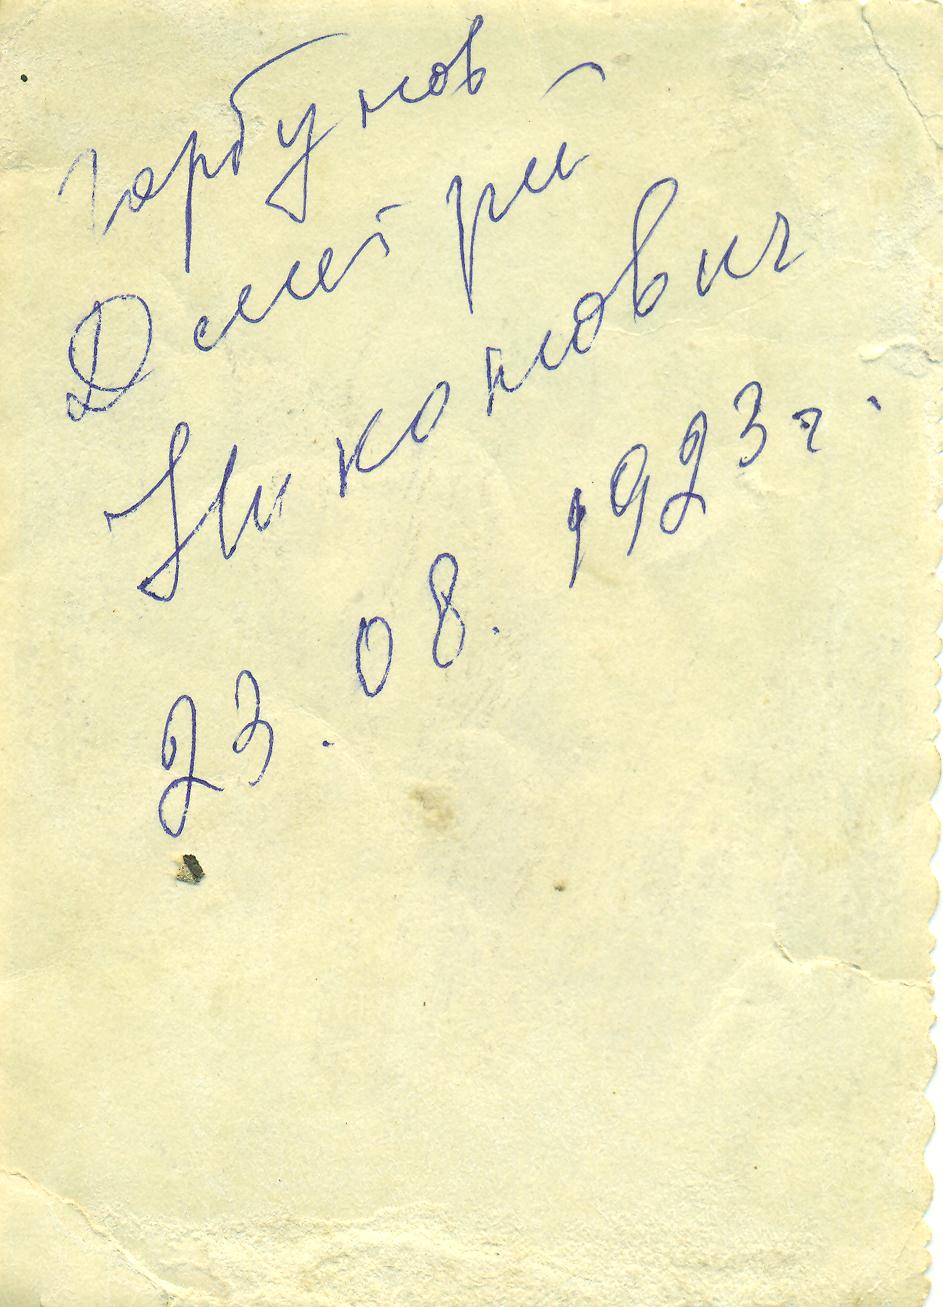 Горбунов
Дмитрий
Никонович
23.08.1923г.